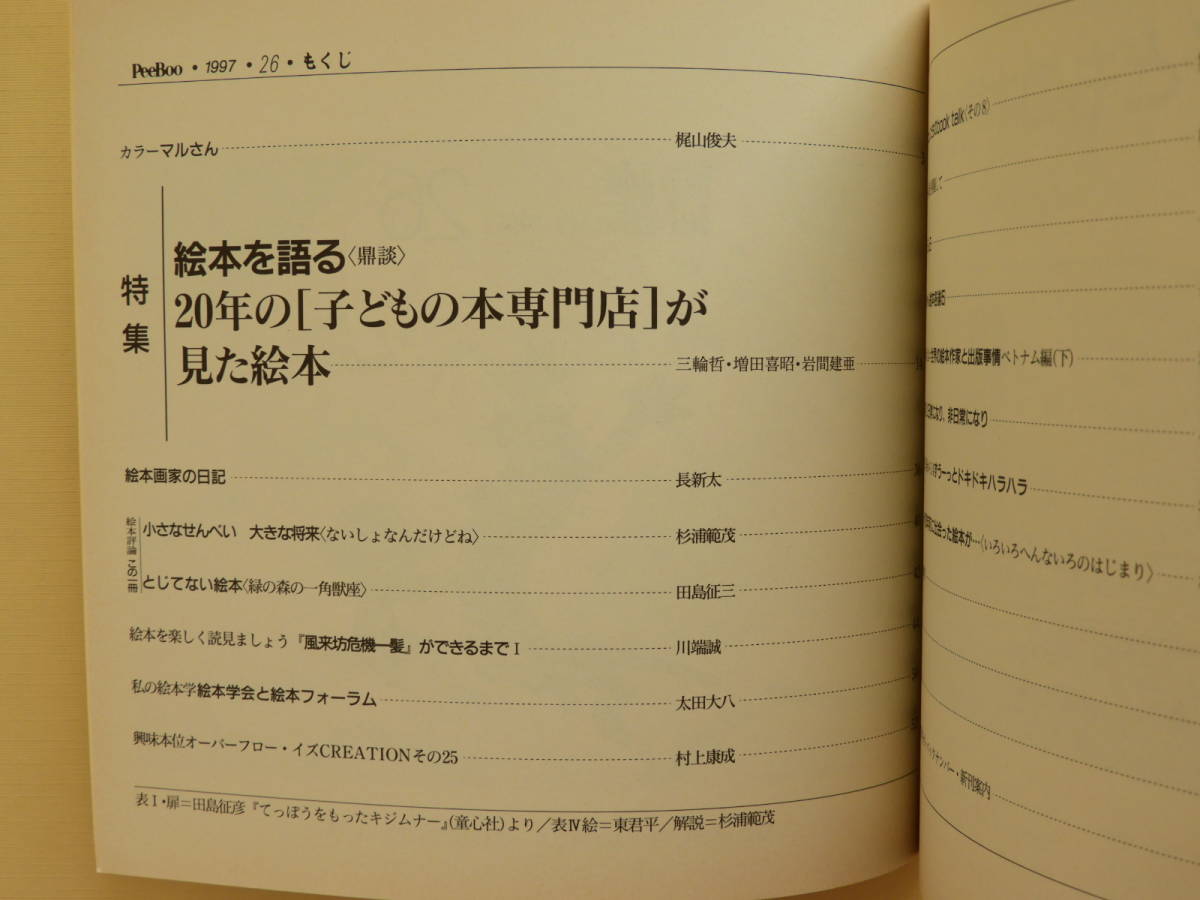 PeeBoo・1997・26・もくじ
カラーマルさん 梶山俊夫
特集
絵本を語る〈鼎談〉
20年の[子どもの本専門店]が
見た絵本 三輪哲・増田喜昭・岩間建亜 14
絵本画家の日記 長新太
絵本評論 この一冊
小さなせんべい 大きな将来〈ないしょなんだけどね〉 杉浦範茂
とじてない絵本〈緑の森の一角獣座〉 田島征三
絵本を楽しく読見ましょう『風来坊危機一髪』ができるまでⅠ 川端誠
私の絵本学絵本学会と絵本フォーラム 太田大八
興味本位オーバーフロー・イズCREATIONその25 村上康成
表Ⅰ・扉=田島征彦『てっぽうをもったキジムナー』(童心社)より/表Ⅳ絵=東君平/解説=杉浦範茂
book talk〈その8〉
して
世界の絵本作家と出版事情ベトナム編(下)
になり、非日常になり
うーっとドキドキハラハラ
に出会った絵本が…〈いろいろへんないろのはじまり〉
バックナンバー・新刊案内